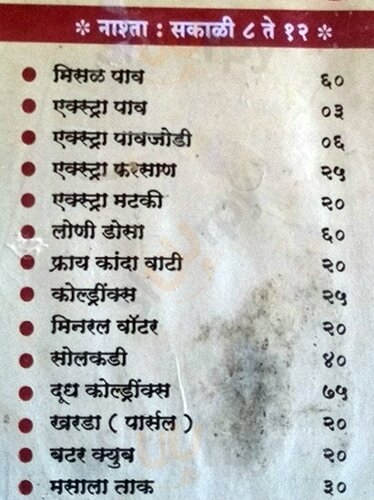 * नाश्ता : सकाळी ८ ते १२ *
• मिसळ पाव ६०
• एक्स्ट्रा पाव ०३
• एक्स्ट्रा पावजोडी ०६
• एक्स्ट्रा फरसाण २५
• एक्स्ट्रा मटकी २०
• लोणी डोसा ६०
• फ्राय कांदा वाटी २०
• कोल्ड्रींक्स २५
• मिनरल वॉटर २०
• सोलकडी ४०
• दूध कोल्ड्रींक्स ७५
• खरडा ( पार्सल ) २०
• बटर क्युब २०
• मसाला ताक ३०